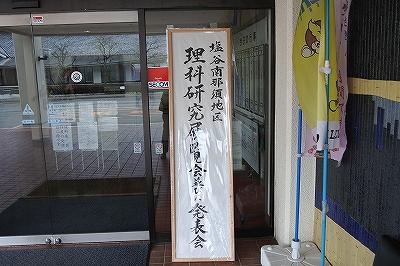 塩谷南那須地区
理科研究展覧会並びに発表会
SECOM